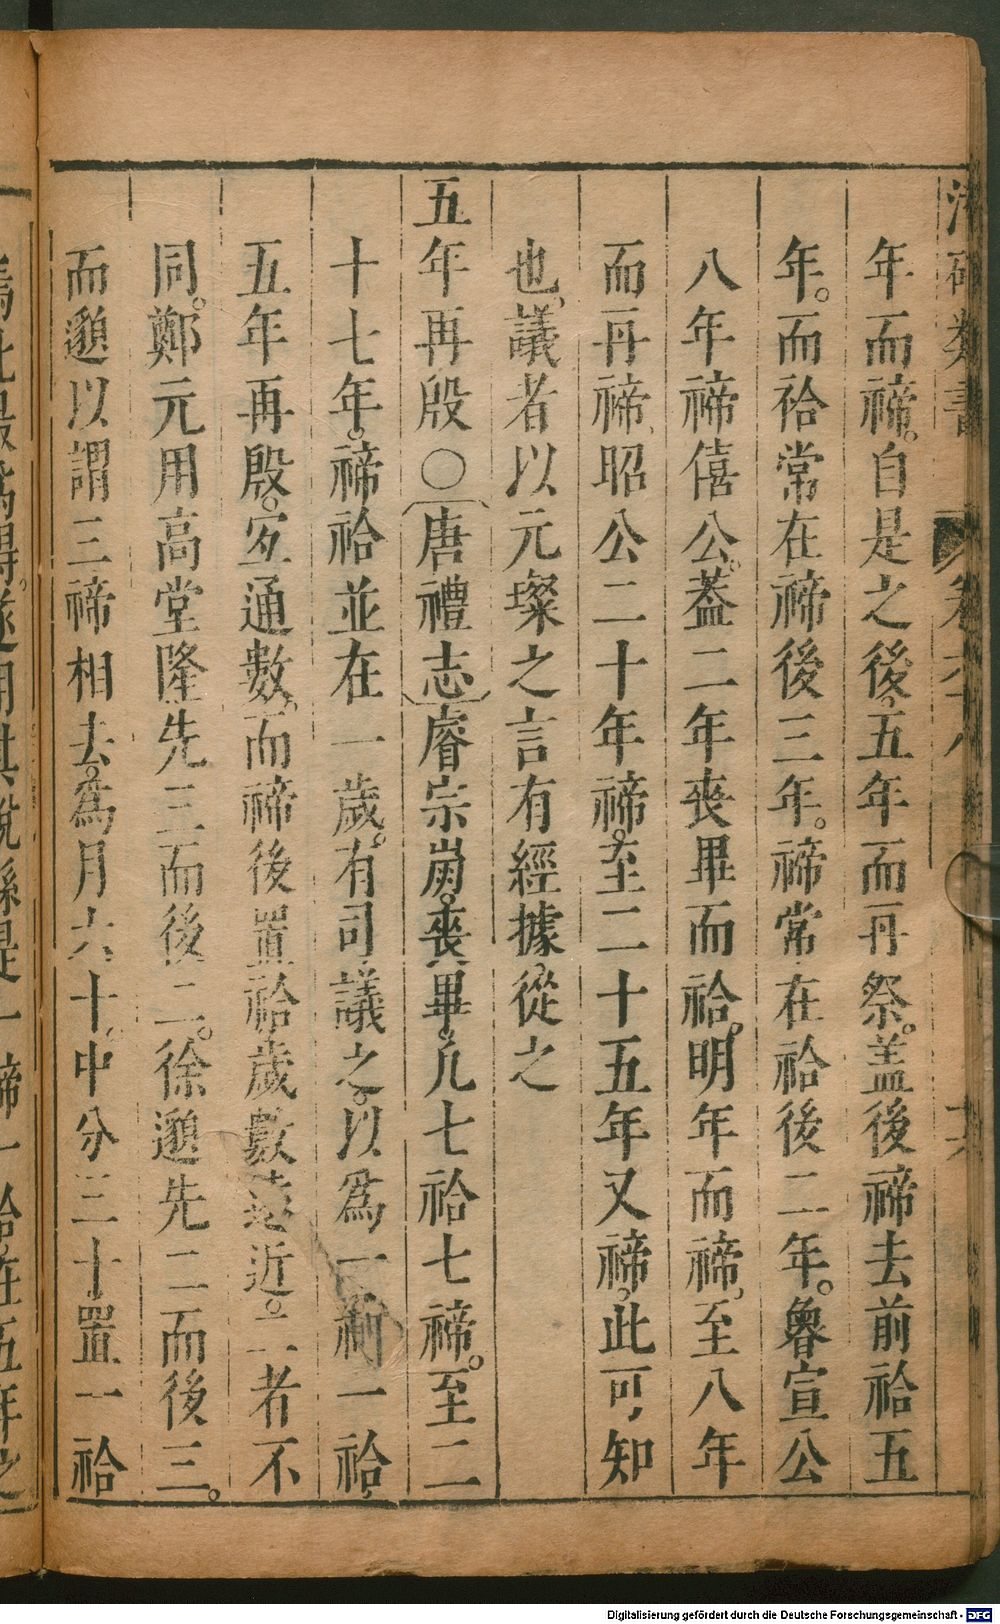 年而禘。自是之後五年而再祭。盖後禘去前祫五
年。而祫常在禘後三年。禘常在祫後二年。魯宣公
八年禘僖公。葢二年喪畢而祫。明年而禘。至八年
而再禘、昭公二十年禘。至二十五年又禘。此可知
也、議者以元璨之言有經據、從之
五年再殷○唐禮志睿宗崩。喪畢。凡七祫七禘。至二
十七年。禘祫並在一歲。有司議之。以爲一禘一祫、
五年再殷。宜通數。而禘後置祫。歲數遠近。二者不
同。鄭元用高堂隆先三而後二。徐邈先二而後三。
而邈以謂三禘相去。爲月六十。中分三十置一祫
Digitalisierung gefördert durch die Deutsche Forschungsgemeinschaft - DFG